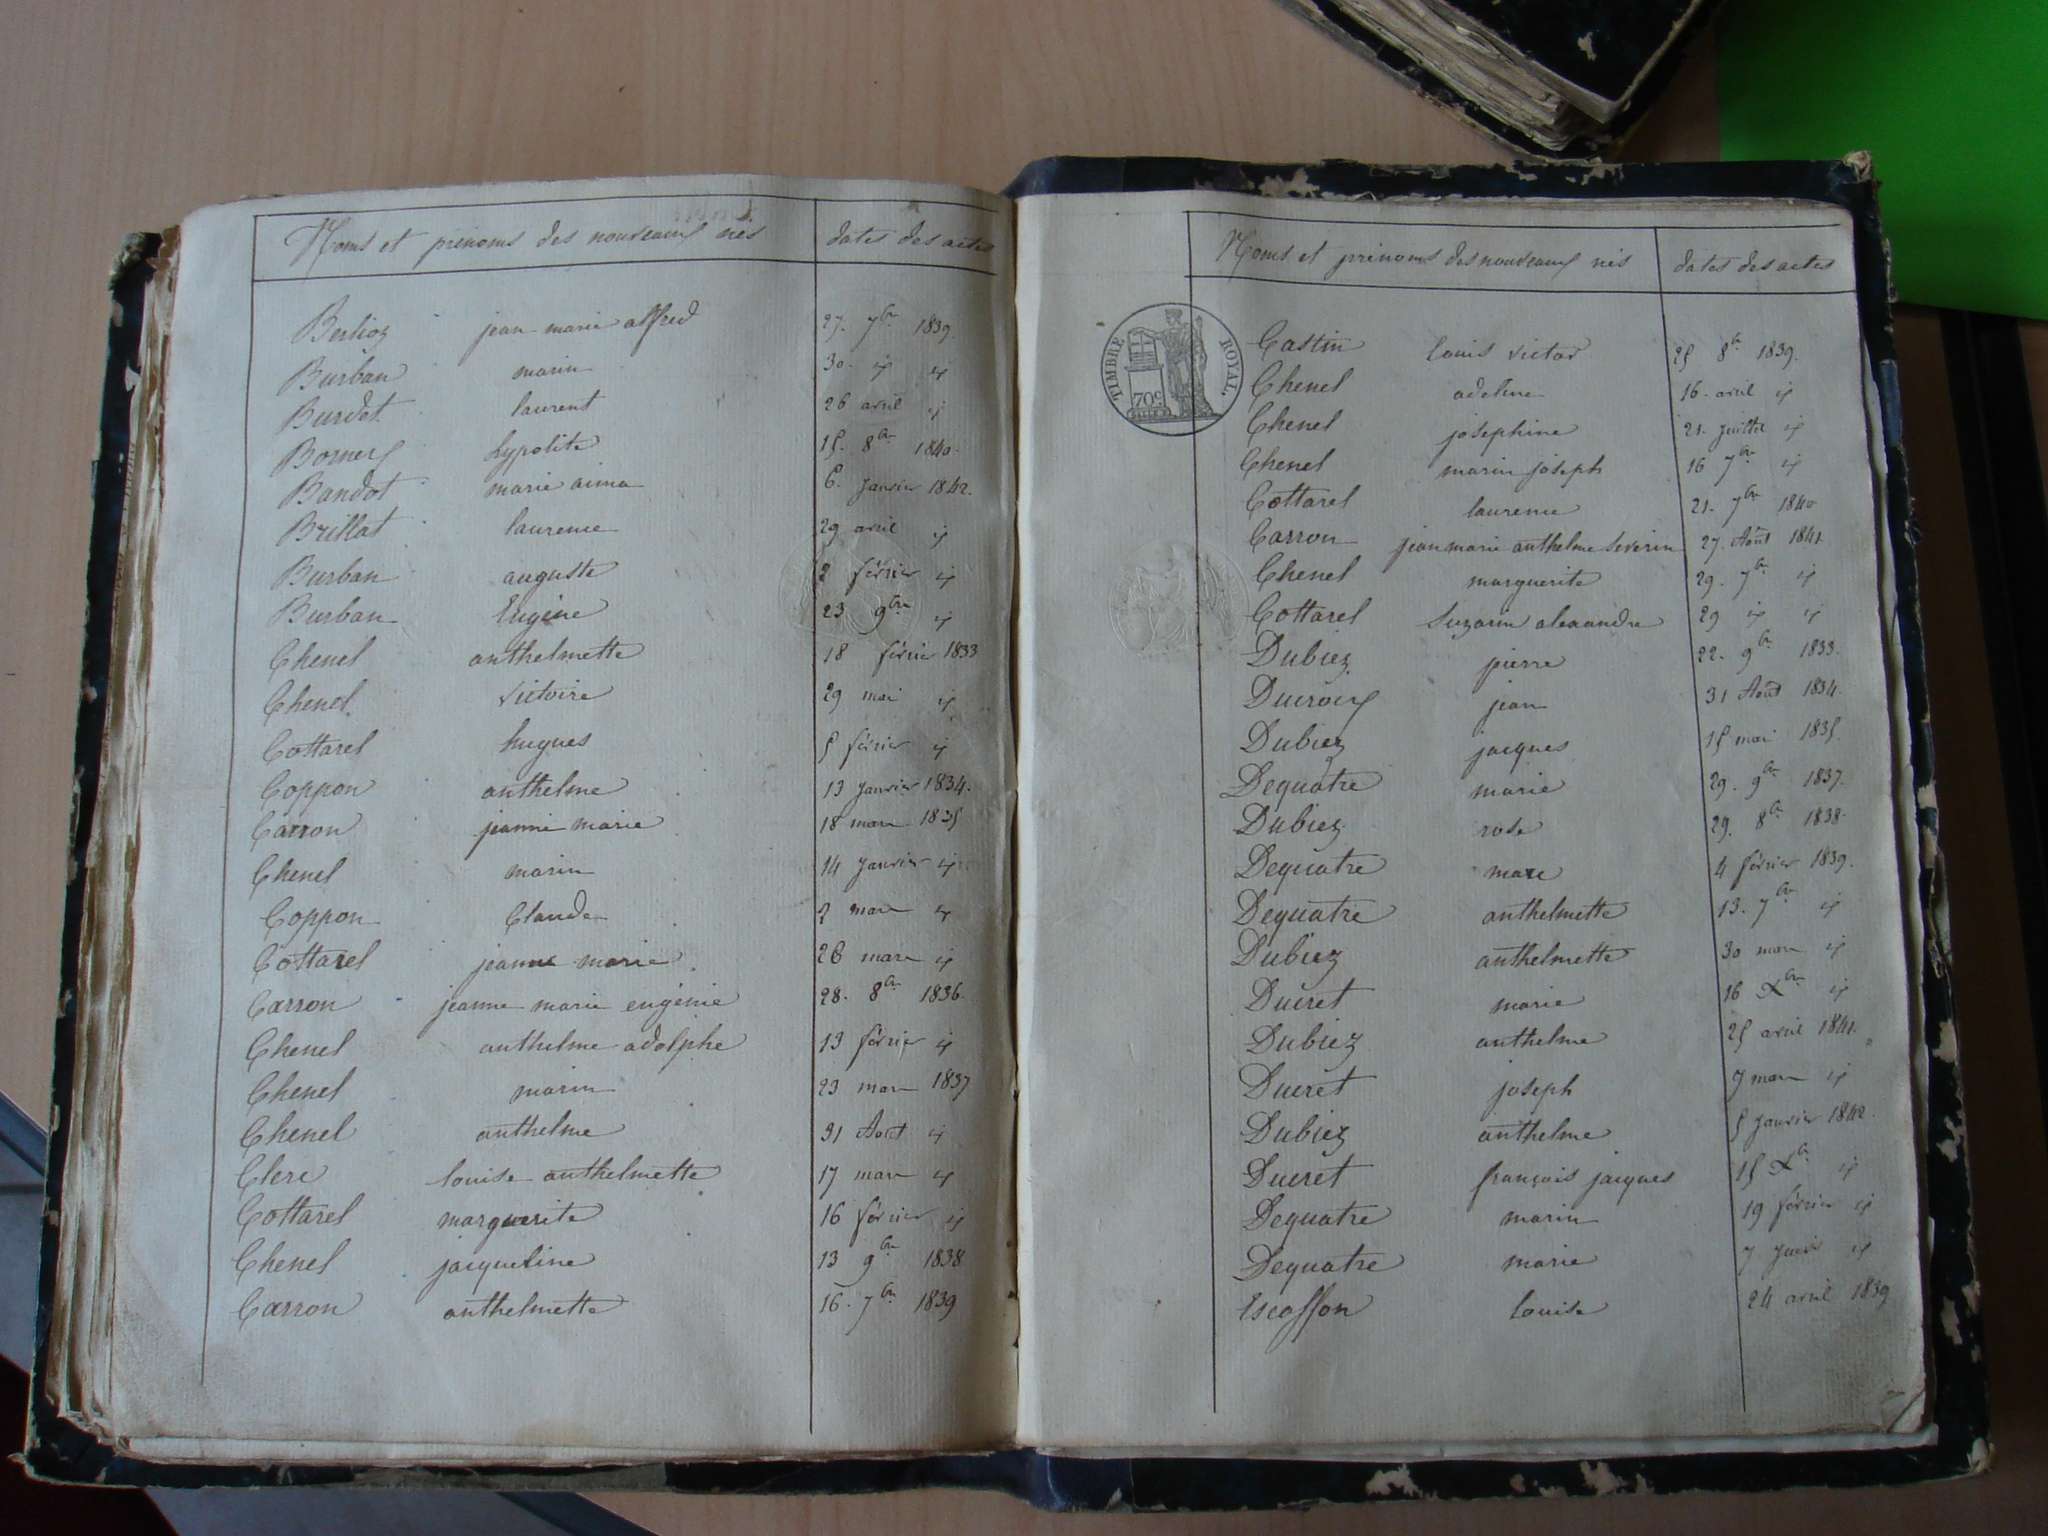 Noms et prénoms des nouveaux nés dates des actes
Berlioz jean marie alfred 27. 7bre 1839.
Burban marin 30. id id
Burdet laurent 26 avril id
Borney hypolite 15. 8bre 1840.
Bandot marie aima 6. janvier 1842.
Brillat laurence 29 avril id
Burban auguste 2 février id
Burban Eugène 23 9bre id
Chenel anthelmette 18 février 1833
Chenel victoire 29 mai id
Cottarel hugues 5 février id
Coppon anthelme 13 janvier 1834.
Carron jeanne marie 18 mars 1835
Chenel marin 14 janvier id
Coppon Claude 2 mars id
Cottarel jeanne marie 26 mars id
Carron jeanne marie eugénie 28. 8bre 1836.
Chenel anthelme adolphe 13 février id
Chenel marin 23 mars 1837
Chenel anthelme 31 Août id
Clerc louise anthelmette 17 mars id
Cottarel marguerite 16 février id
Chenel jacqueline 13 9bre 1838
Carron anthelmette 16. 7bre 1839
Noms et prénoms des nouveaux nés dates des actes
TIMBRE ROYAL.
70c
Castin louis victor 25 8bre 1839.
Chenel adeline 16. avril id
Chenel josephine 21. juillet id
Chenel marin joseph 16 7bre id
Cottarel laurence 21. 7bre 1840
Carron jean marie anthelme Severin 27. Août 1841.
Chenel marguerite 29. 7bre id
Cottarel Suzanne alexandre 29 id id
Dubiez pierre 22. 9bre 1833.
Ducroux jean 31 Août 1834.
Dubiez jacques 15 mai 1835.
Dequatre marie 29. 9bre 1837.
Dubiez rose 29. 8bre 1838.
Dequatre marc 4 février 1839.
Dequatre anthelmette 13. 7bre id
Dubiez anthelmette 30 mars id
Ducret marie 16 Xbre id
Dubiez anthelme 25 avril 1841.
Ducret joseph 9 mars id
Dubiez anthelme 5 janvier 1842.
Ducret françois jacques 15 Xbre id
Dequatre marin 19 février id
Dequatre marie 7 juin id
Escoffon Louise 24 avril 1839